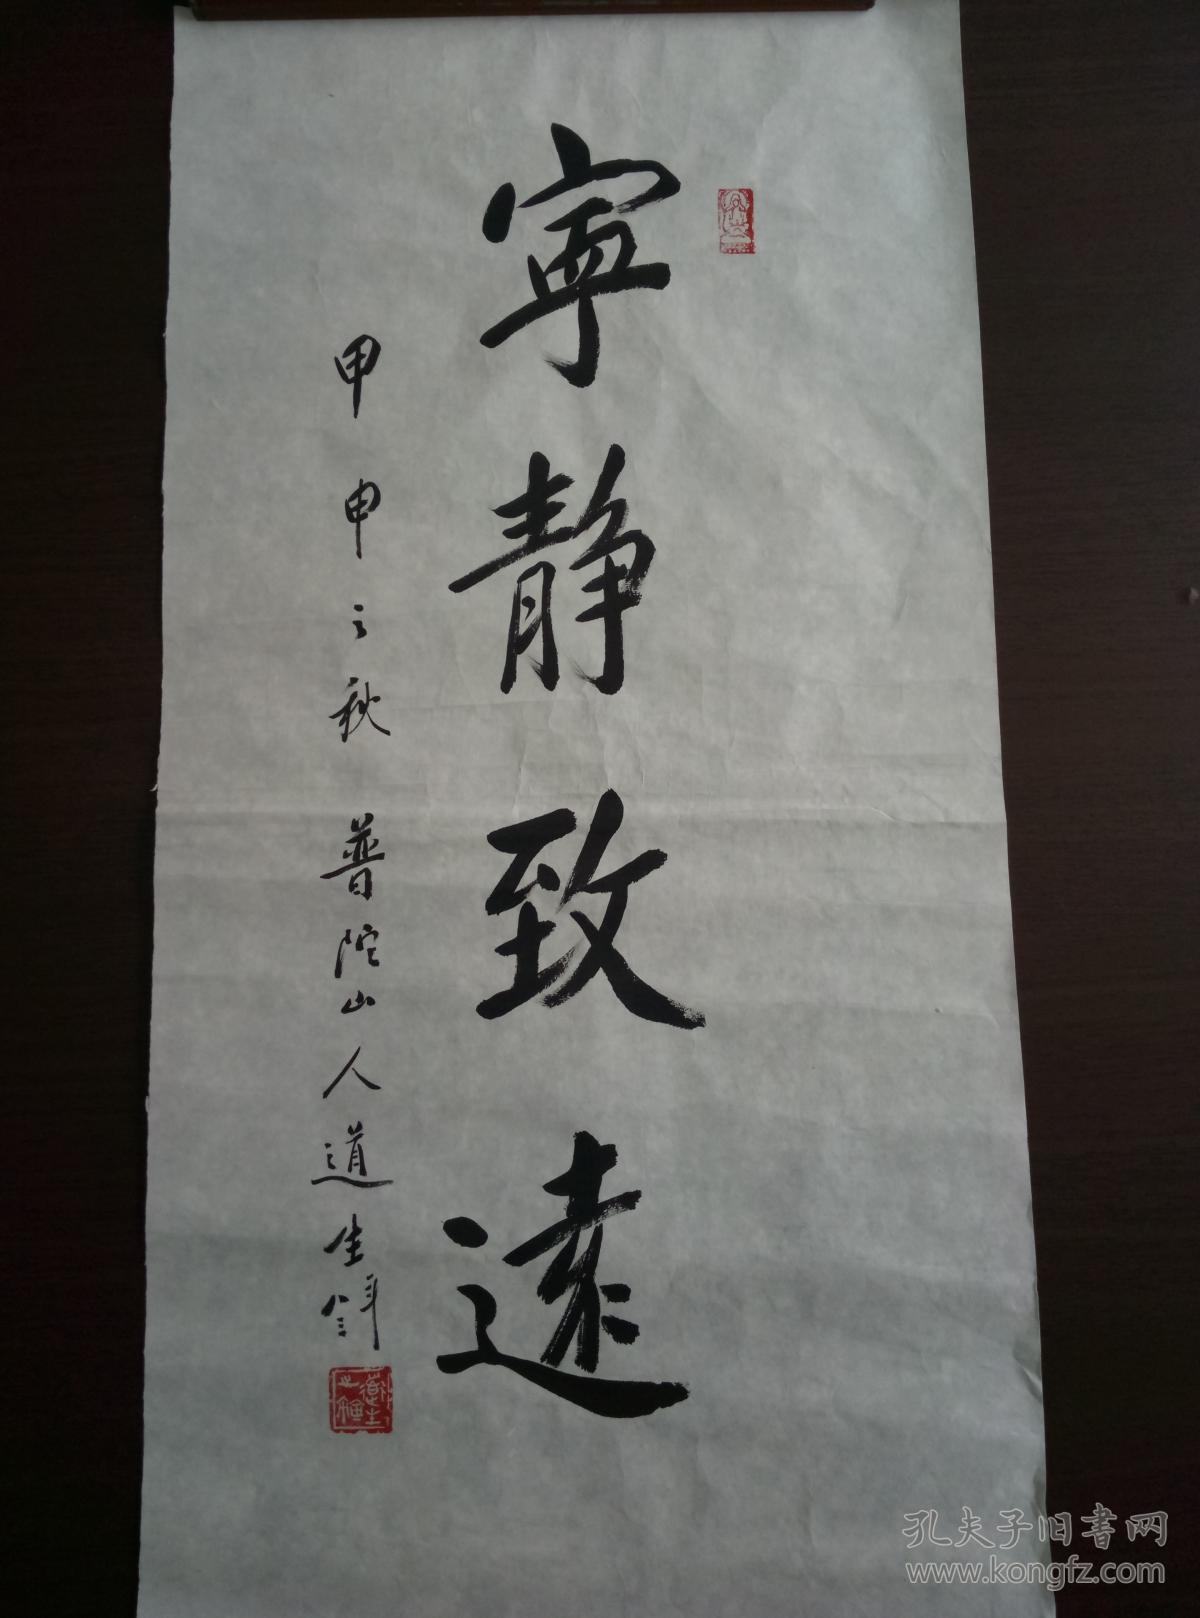 寧静致遠
甲申之秋 普陀山人道生
孔夫子旧書网
www.kongfz.com